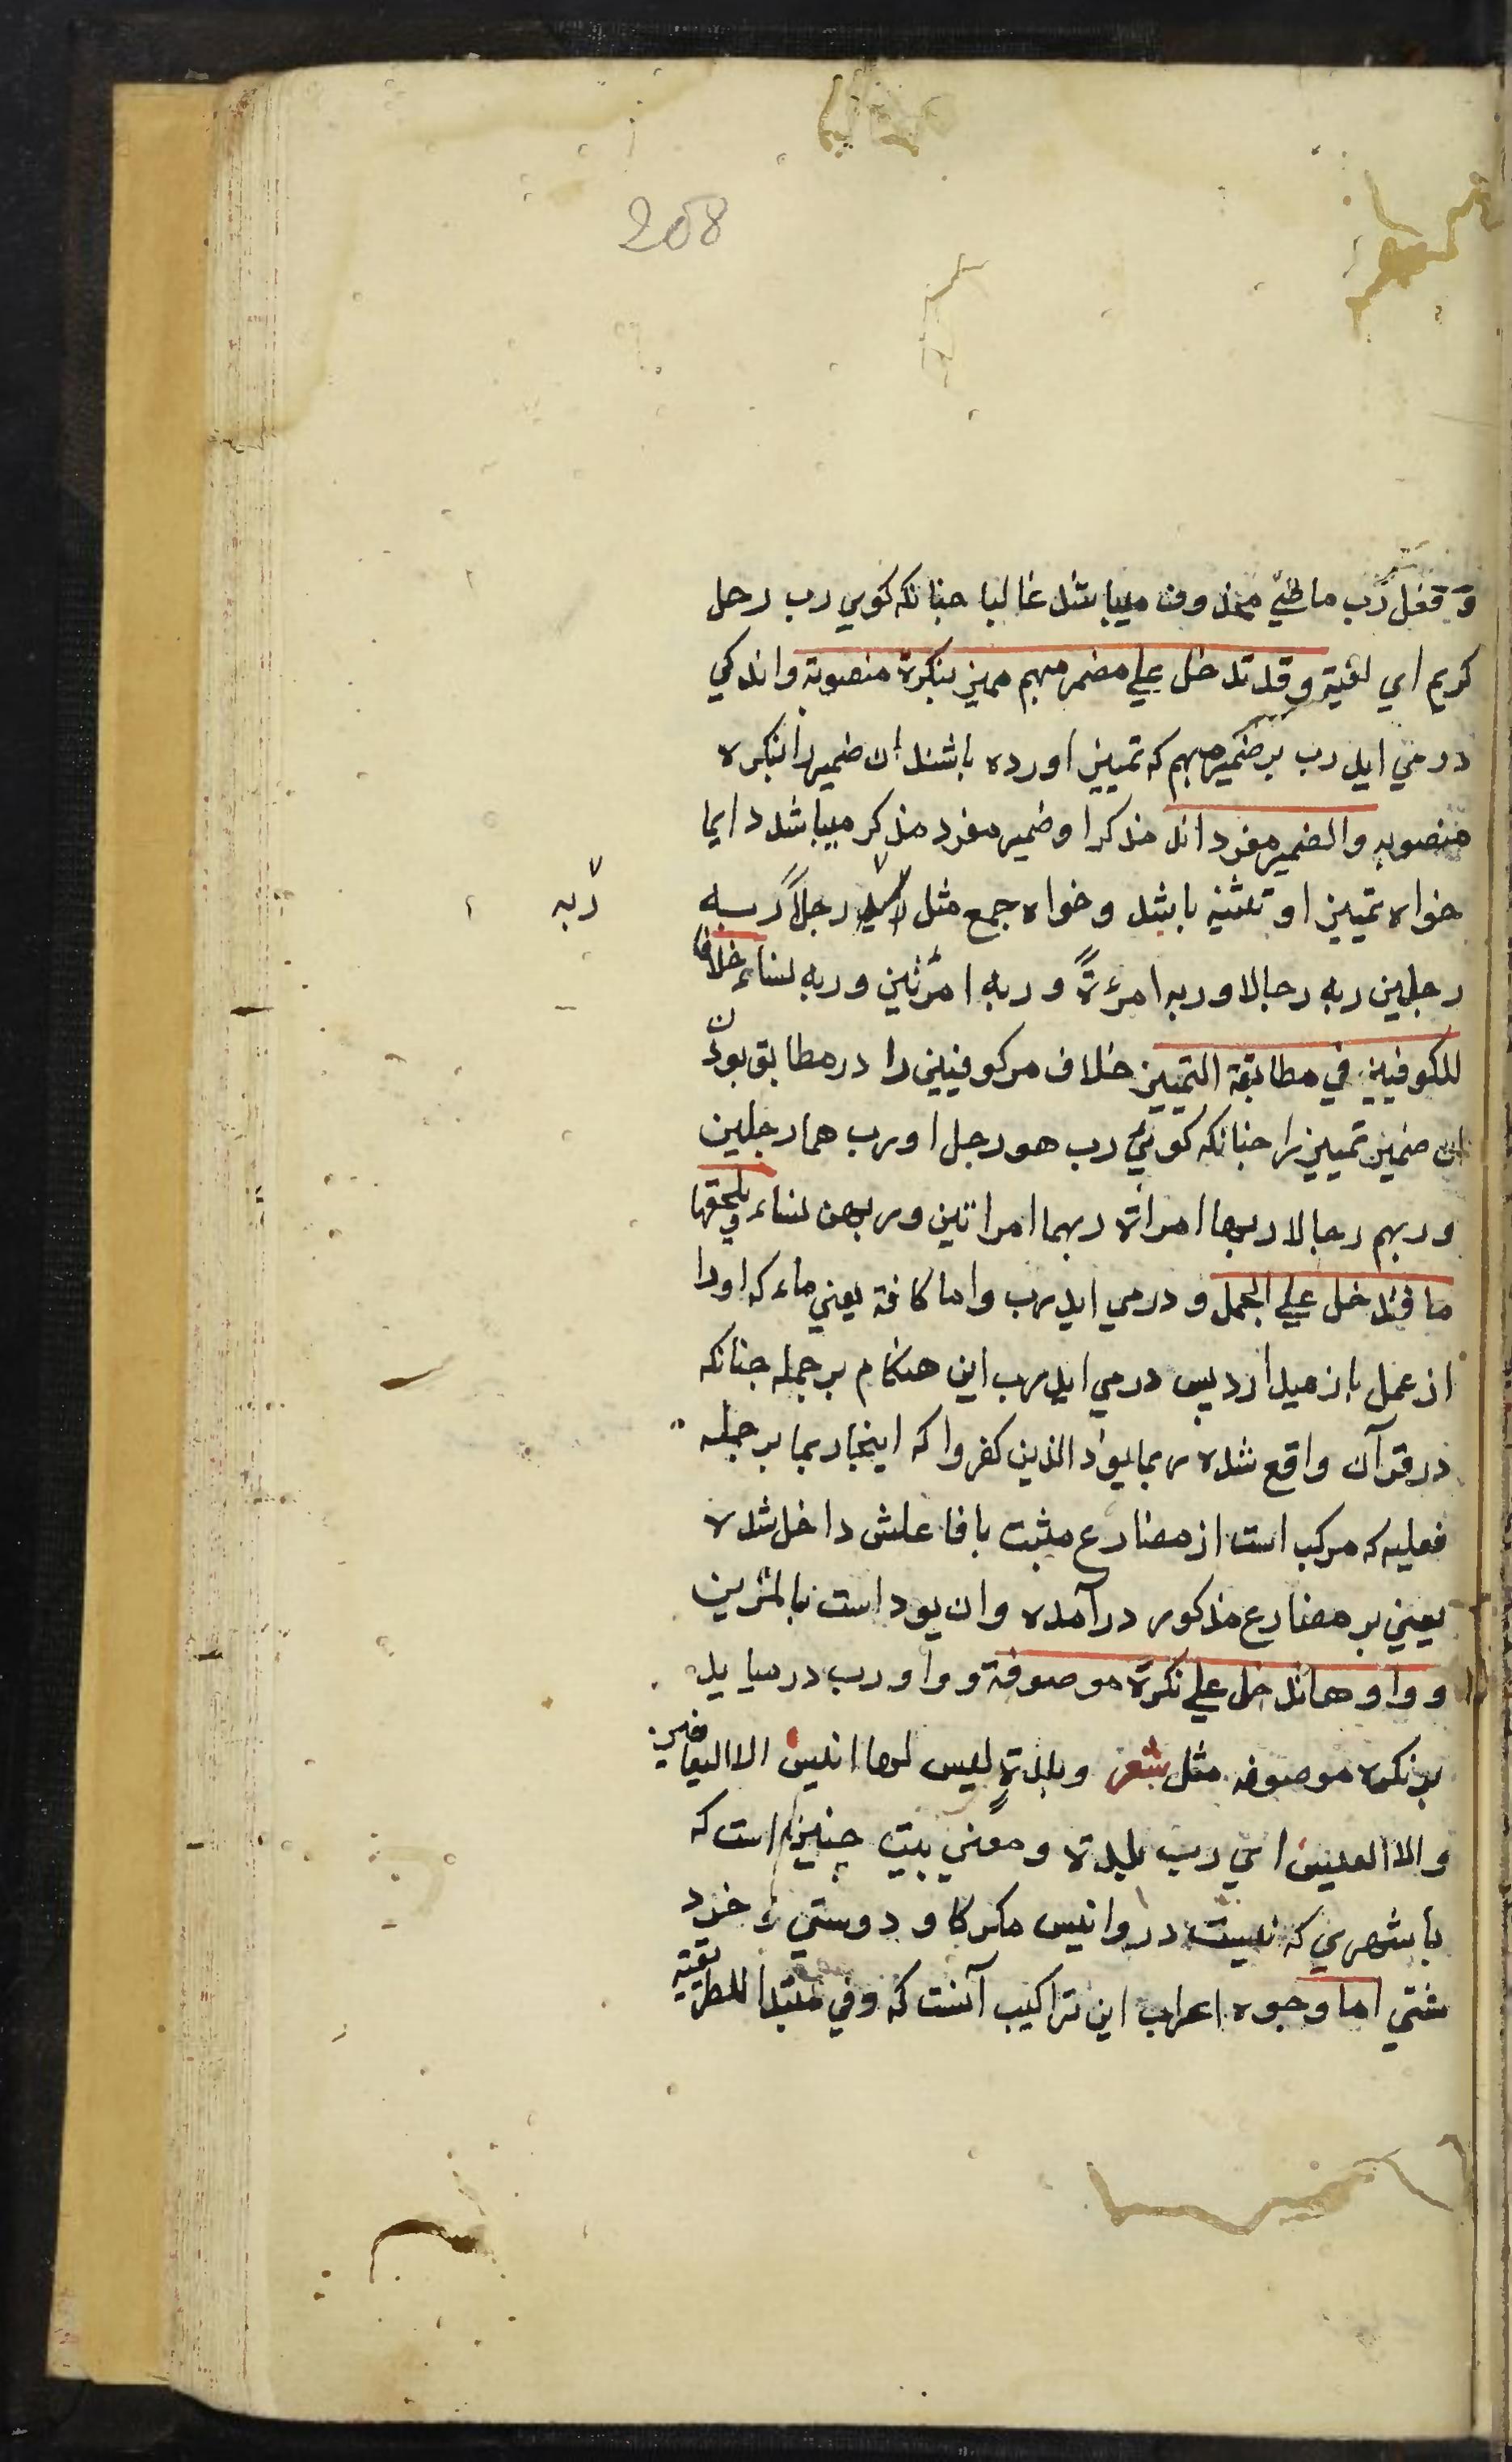 208
و فعل رب ماضي محذوف میباشد غالبا جنانکه کویي رب رجل
کریم اي لقیته وقد تدخل علي مضمر مبهم ممیز بنکرة منصوبة واندکي
درمي اید رب بر ضمیر مبهم که تمییز اورده باشند ان ضمیر را بنکره
منصوبه والضمیر مفرد مذکر او ضمیر مفرد مذکر میباشد دایما
خواه تمییز او تثنیه باشد وخواه جمع مثل رجلاً ربه
ربه
رجلین ربه رجالا وربه امرءةً وربه امرئتین وربه نساء خلافا
للکوفیین في مطابقة التمییز خلاف مر کوفیین را در مطابق بودن
ان ضمیر تمییز را جنانکه کوئي رب هو رجلا ورب هما رجلین
وربهم رجالا ربها امراة ربهما امراتین وربهن نساء ویلحقها
ما فتدخل علي الجمل ودرمي اید برب واما کافه یعني ماء که اورا
از عمل باز میدارد پس درمي اید رب این هنکام بر جمله جنانکه
در قرآن واقع شده ربما یود الذین کفروا که اینجا ربما بر جمله
فعلیه که مرکب است از مضارع مثبت با فاعلش داخل شده
یعني بر مضارع مذکور درآمده وان یود است
وواوها تدخل علي نکرة موصوفة وواو رب در میاید
بر نکره موصوفه مثل شعر وبلدةٍ لیس لها انیس الا الیعافیر
والا العیس اي رب بلدة ومعني بیت جنین است که
بابشهري که نیست در وانیس مکر کاو دوستي و خرد
شتي اما وجوه اعراب این تراکیب آنست که وفي مبتدا للطریقیة